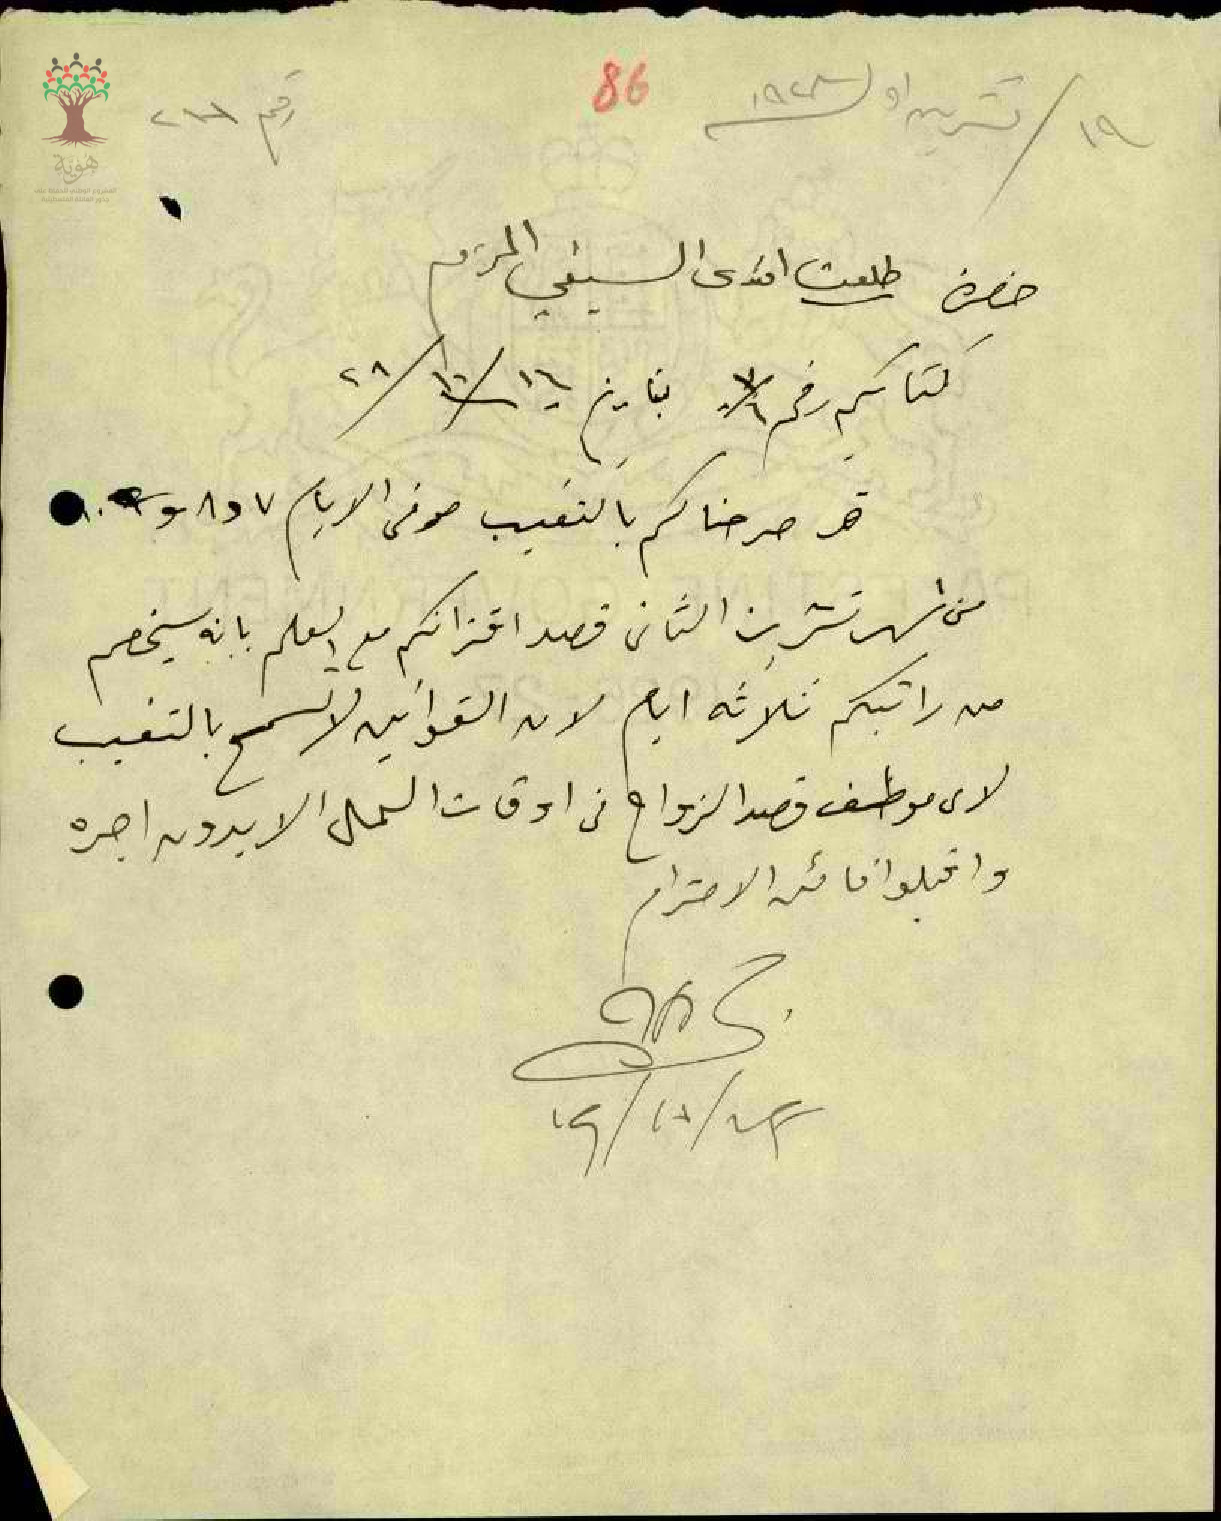 86
١٩/ تشرين اول سنة ١٩٢٨
رقم
هوية
حضرة طلعت افندي السيفي المحترم
كتابكم رقم بتاريخ ١٦/١٠/٢٨
قد صرحنا لكم بالتغيب في الايام ٧ و٨ و
من شهر تشرين الثاني قصد اقترانكم مع العلم بانه سيخصم
من راتبكم ثلاثة ايام لان القوانين لا تسمح بالتغيب
لاي موظف قصد الزواج في اوقات العمل الا بدون اجره
واقبلوا فائق الاحترام
PALESTINE GOVERNMENT